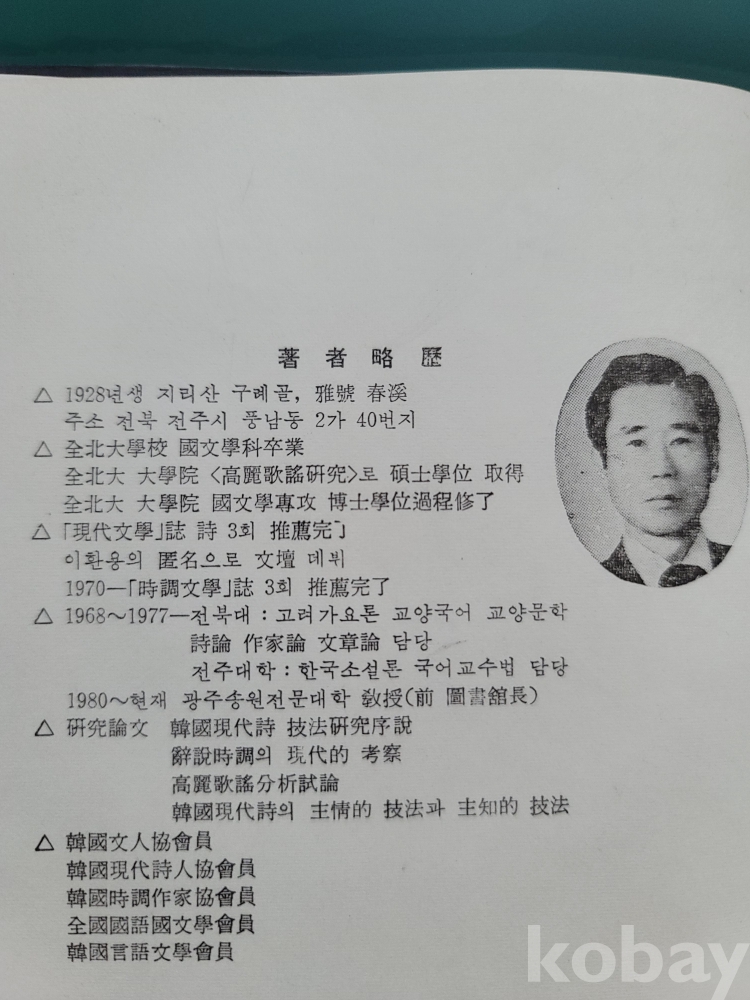 著者略歷
△ 1928년생 지리산 구례골, 雅號 春溪
주소 전북 전주시 풍남동 2가 40번지
△ 全北大學校 國文學科卒業
全北大 大學院 〈高麗歌謠硏究〉로 碩士學位 取得
全北大 大學院 國文學專攻 博士學位過程修了
△ 「現代文學」誌 詩 3회 推薦完了
이환용의 匿名으로 文壇 데뷔
1970―「時調文學」誌 3회 推薦完了
△ 1968~1977―전북대 : 고려가요론 교양국어 교양문학
詩論 作家論 文章論 담당
전주대학 : 한국소설론 국어교수법 담당
1980~현재 광주송원전문대학 敎授(前 圖書館長)
△ 硏究論文 韓國現代詩 技法硏究序說
辭說時調의 現代的 考察
高麗歌謠分析試論
韓國現代詩의 主情的 技法과 主知的 技法
△ 韓國文人協會員
韓國現代詩人協會員
韓國時調作家協會員
全國國語國文學會員
韓國言語文學會員
kobay